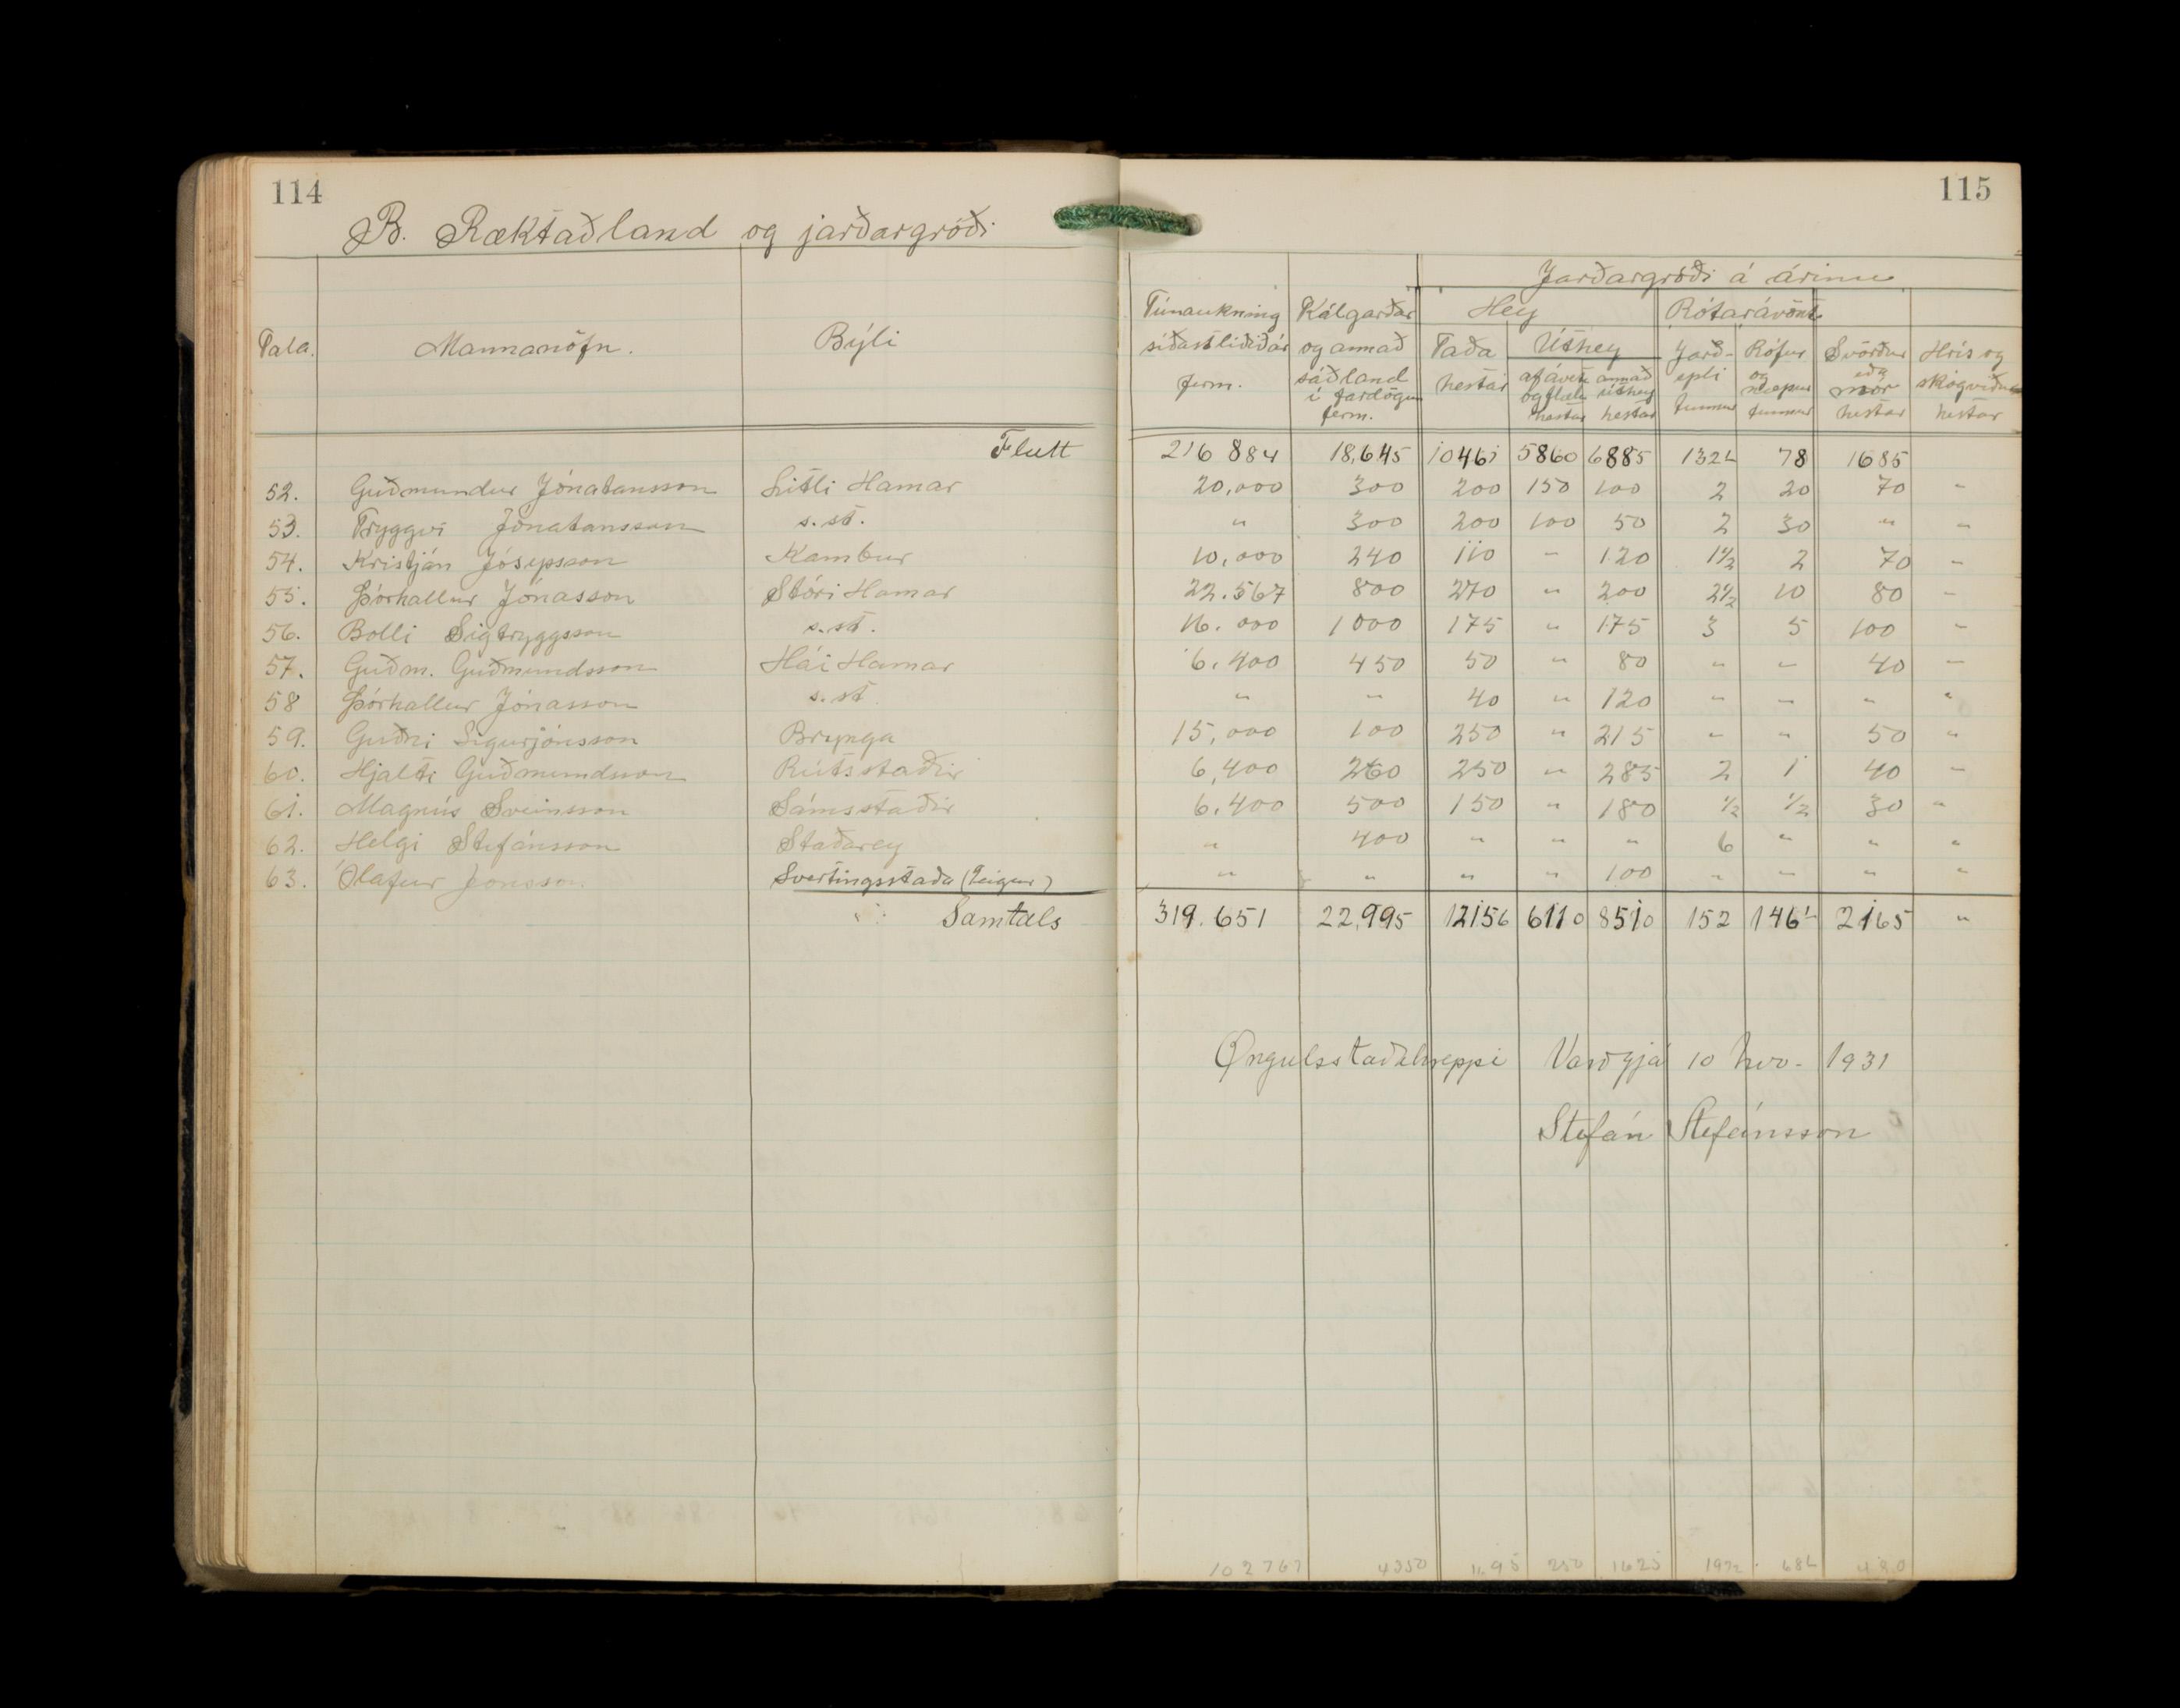 114
115
B. Ræktaðland og jarðargróði
Jarðargróði á árinu
Tala.
Mannanöfn.
Býli
Túnaukning síðastliðið ár ferm.
Kálgarðar og annað sáðland í fardögum ferm.
Hey
Taða hestar
Úthey
af áveitu og flæði hestar
annað úthey hestar
Rótarávöxt.
Jarðepli tunnur
Rófur og næpur tunnur
Svörður eða mór hestar
Hrís og skógviður hestar
Flutt 216 884 18,645 10461 5860 6885 132½ 78 1685
52. Guðmundur Jónatansson Litli Hamar 20,000 300 200 150 100 2 20 70 "
53. Tryggvi Jónatansson s. st. " 300 200 100 50 2 30 " "
54. Kristján Jósepsson Kambur 10,000 240 110 – 120 1½ 2 70 "
55. Þórhallur Jónasson Stóri Hamar 22.567 800 270 " 200 2½ 10 80 "
56. Bolli Sigtryggsson s. st. 16.000 1000 175 " 175 3 5 100 "
57. Guðm. Guðmundsson Hái Hamar 6.400 450 50 " 80 " " 40 "
58 Þórhallur Jónasson s. st " " 40 " 120 " " " "
59. Guðni Sigurjónsson Brynga 15,000 100 250 " 215 " " 50 "
60. Hjalti Guðmundsson Rútsstaðir 6,400 260 250 " 285 2 1 40 "
61. Magnús Sveinsson Sámsstaðir 6.400 500 150 " 180 ½ ½ 30 "
62. Helgi Stefánsson Staðarey " 400 " " " 6 " " "
63. Ólafur Jónsson Svertingsstaða (Teigur) " " " " 100 " " " "
Samtals 319.651 22,995 12156 6110 8510 152 146½ 2165 "
Øngulsstaðahreppi Varðgjá 10 Nóv. 1931
Stefán Stefánsson
102767 4350 1695 250 1625 19½ 68½ 480